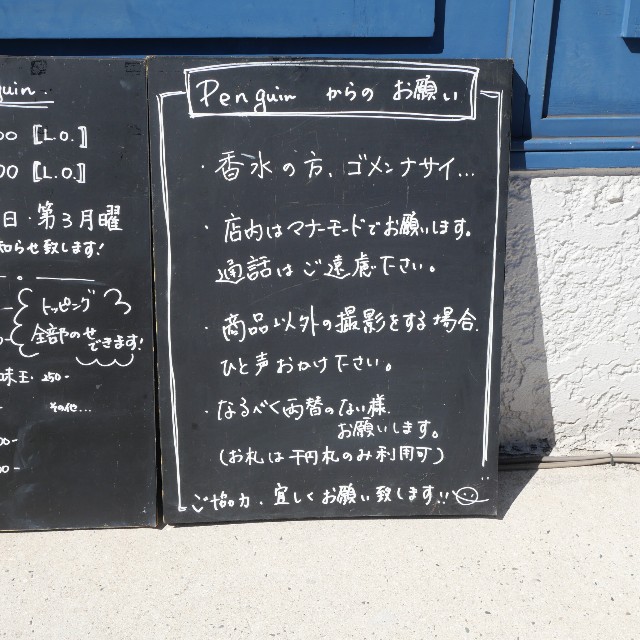 guin.
00 [L.O.]
00 [L.O.]
日・第3月曜
知らせ致します!
トッピング
全部のせ
できます!
味玉・250-
その他...
00-
00-
Penguin からの お願い
・香水の方、ゴメンナサイ...
・店内はマナーモードでお願いします。
通話はご遠慮下さい。
・商品以外の撮影をする場合、
ひと声おかけ下さい。
・なるべく両替のない様、
お願いします。
(お札は千円札のみ利用可)
ご協力、宜しくお願い致します!!